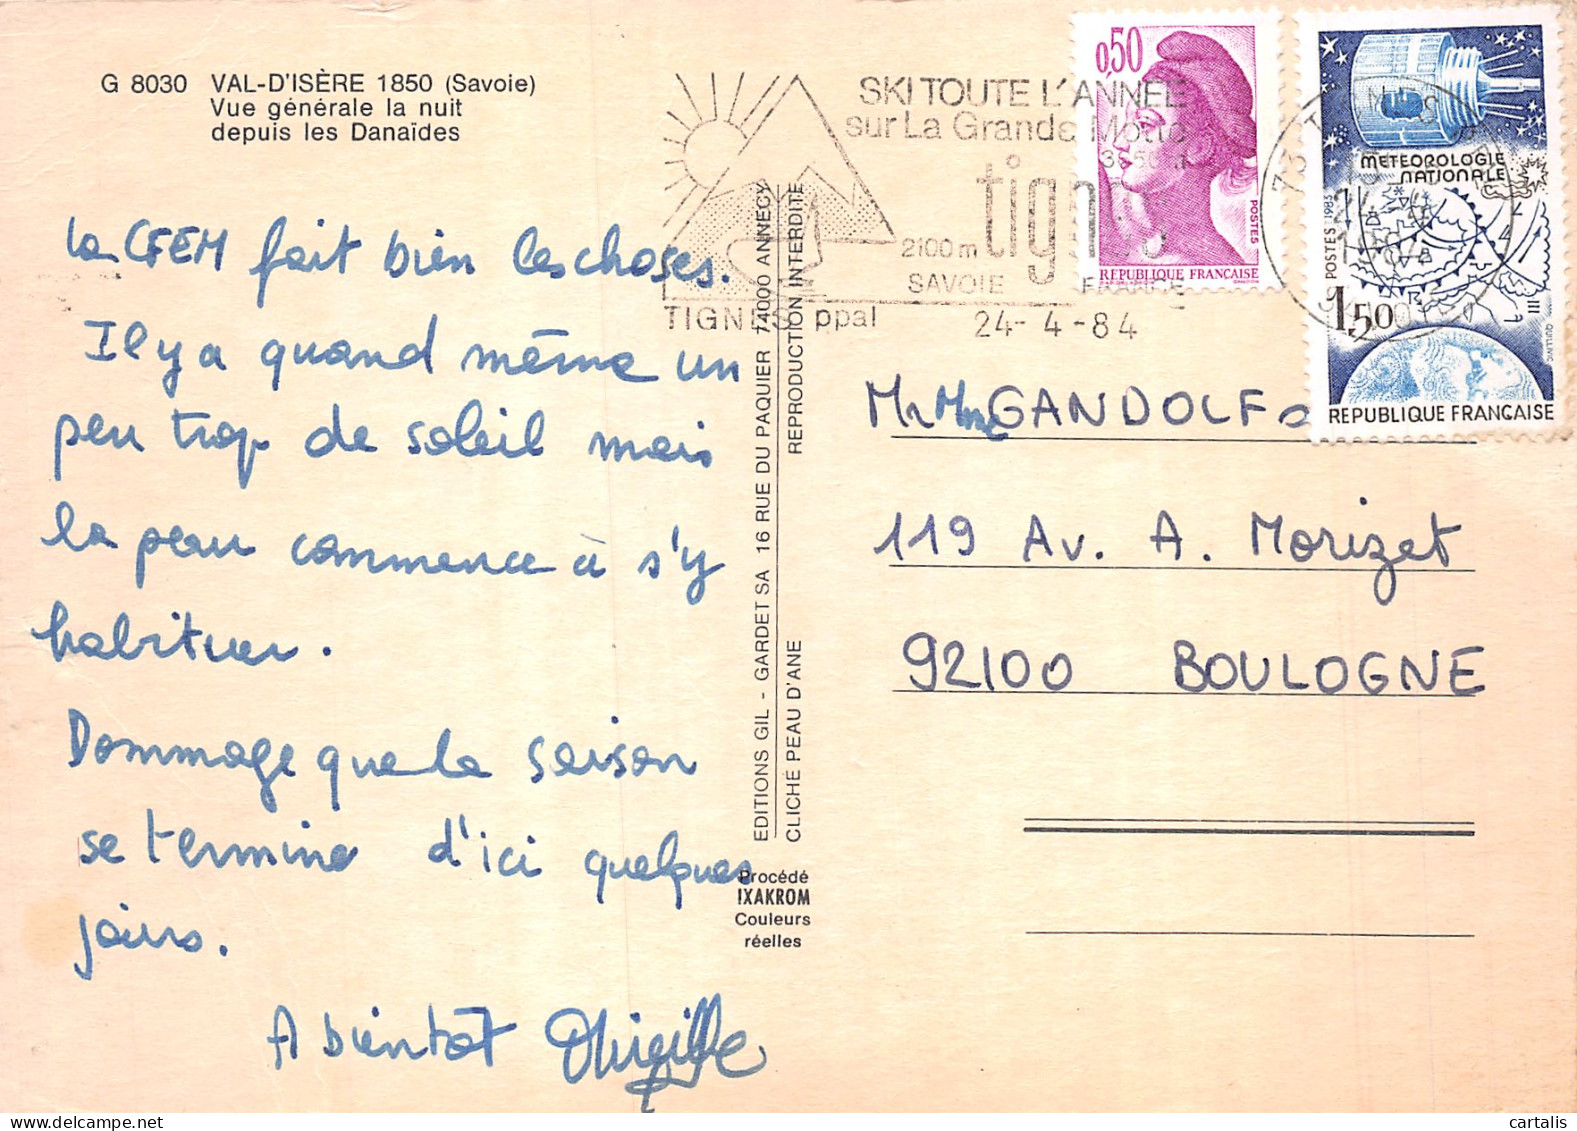 G 8030 VAL-D'ISÈRE 1850 (Savoie)
Vue générale la nuit
depuis les Danaïdes
La CFEM fait bien les choses.
Il y a quand même un
peu trop de soleil mais
la peau commence à s'y
habituer.
Dommage que la saison
se termine d'ici quelques
jours.
A bientôt
EDITIONS GIL - GARDET SA 16 RUE DU PAQUIER 74000 ANNECY
CLICHÉ PEAU D'ANE REPRODUCTION INTERDITE
Procédé
IXAKROM
Couleurs
réelles
SKI TOUTE L'ANNÉE
sur La Grande Motte
tignes
2100 m
SAVOIE FRANCE
TIGNES ppal
24-4-84
0,50
POSTES
REPUBLIQUE FRANÇAISE
METEOROLOGIE
NATIONALE
POSTES 1983
1,50
QUILLIVIC
REPUBLIQUE FRANÇAISE
Mr Mme GANDOLFO
119 Av. A. Morizet
92100 BOULOGNE
cartalis.com